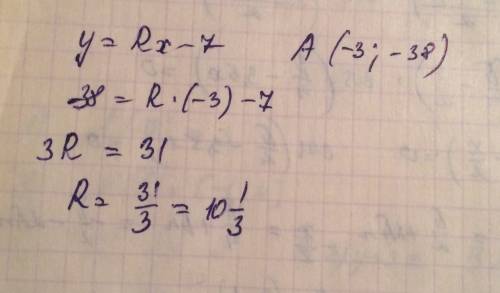 y = Rx - 7 A (-3; -38)
-38 = R · (-3) - 7
3R = 31
R = 31/3 = 10 1/3